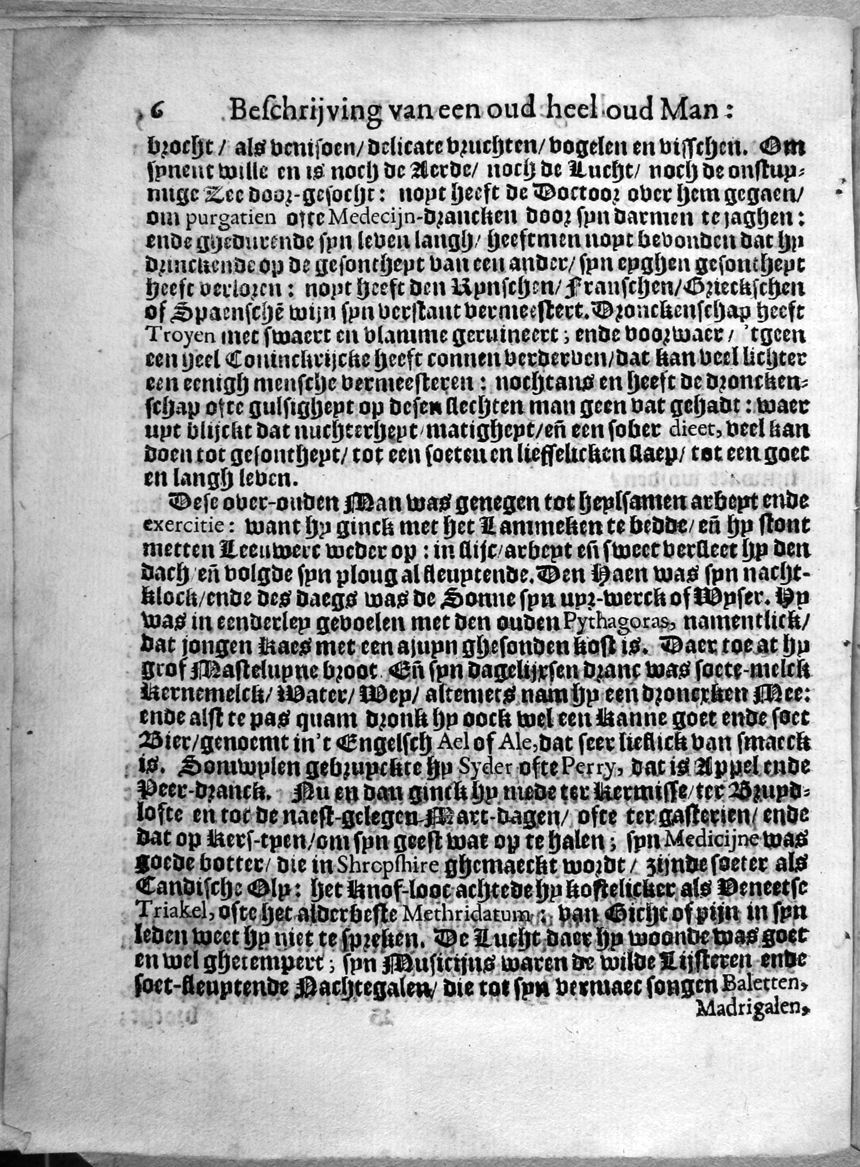 6 Beſchrijving van een oud heel oud Man:
brocht / als veniſoen/ delicate vruchten/ vogelen en viſſchen. Om
ſynent wille en is noch de Aerde/ noch de Lucht/ noch de onſtuy-
mige Zee door-geſocht: noyt heeft de Doctoor over hem gegaen/
om purgatien ofte Medecijn-drancken door ſyn darmen te jaghen:
ende ghedurende ſyn leven langh/ heeftmen noyt bevonden dat hy
drinckende op de geſontheyt van een ander/ ſyn eyghen geſontheyt
heeft verloren: noyt heeft den Rynſchen/ Franſchen/ Grieckſchen
of Spaenſchē wijn ſyn verſtant vermeeſtert. Dronckenſchap heeft
Troyen met ſwaert en vlamme geruineert; ende voorwaer/ 'tgeen
een heel Coninckrijcke heeft connen verderven/ dat kan veel lichter
een eenigh menſche vermeeſteren: nochtans en heeft de droncken-
ſchap ofte gulſigheyt op deſen ſlechten man geen vat gehadt: waer
uyt blijckt dat nuchterheyt/ matigheyt/ eñ een ſober dieet, veel kan
doen tot geſontheyt/ tot een ſoeten en lieffelicken ſlaep/ tot een goet
en langh leven.
Deſe over-ouden Man was genegen tot heylſamen arbeyt ende
exercitie: want hy ginck met het Lammeken te bedde/ eñ hy ſtont
metten Leeuwerc weder op: in ſlijc/ arbeyt eñ ſweet verſleet hy den
dach/ eñ volgde ſyn ploug al fleuytende. Den Haen was ſyn nacht-
klock/ ende des daegs was de Sonne ſyn uyr-werck of Wyſer. Hy
was in eenderley gevoelen met den ouden Pythagoras, namentlick/
dat jongen Kaes met een ajuyn gheſonden koſt is. Daer toe at hy
grof Maſteluyne broot. Eñ ſyn dagelijxſen dranc was ſoete-melck
Kernemelck/ Water/ Wey/ altemets nam hy een droncxken Mee:
ende alſt te pas quam dronk hy oock wel een Kanne goet ende ſoet
Bier/ genoemt in't Engelſch Ael of Ale, dat ſeer lieflick van ſmaeck
is. Somwylen gebruyckte hy Syder ofte Perry, dat is Appel ende
Peer-dranck. Nu en dan ginck hy mede ter Kermiſſe/ ter Bruyd-
lofte en tot de naeſt-gelegen Mart-dagen/ ofte ter gaſterien/ ende
dat op Kers-tyen/ om ſyn geeſt wat op te halen; ſyn Medicijne was
goede botter/ die in Shropſhire ghemaeckt wordt/ zijnde ſoeter als
Candiſche Oly: het Knof-looc achtede hy koſtelicker als Veneetſe
Triakel, ofte het alderbeſte Methridatum: van Gicht of pijn in ſyn
leden weet hy niet te ſpreken. De Lucht daer hy woonde was goet
en wel ghetempert; ſyn Muſicijns waren de wilde Lijſteren ende
ſoet-fleuytende Nachtegalen/ die tot ſyn vermaec ſongen Baletten,
Madrigalen,